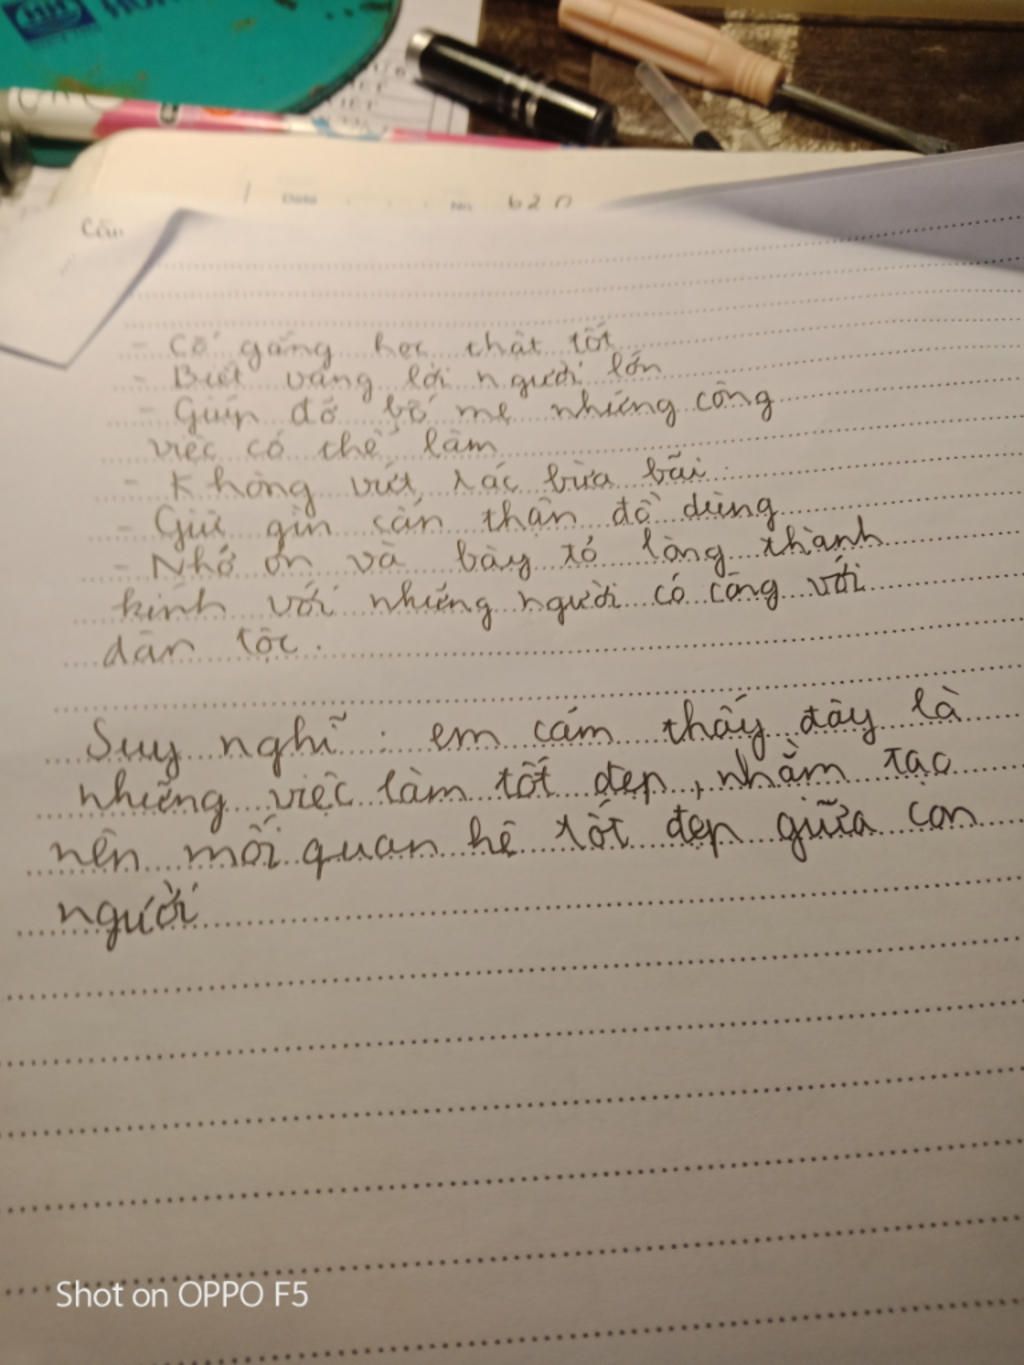 HH
Date No. 620
Căn
- Cố gắng học thật tốt
- Biết vâng lời người lớn
- Giúp đỡ bố mẹ những công
việc có thể làm
- Không vứt rác bừa bãi.
- Giữ gìn cẩn thận đồ dùng
- Nhớ ơn và bày tỏ lòng thành
kính với những người có công với
dân tộc.
Suy nghĩ: em cảm thấy đây là
những việc làm tốt đẹp, nhằm tạo
nên mối quan hệ tốt đẹp giữa con
người
Shot on OPPO F5